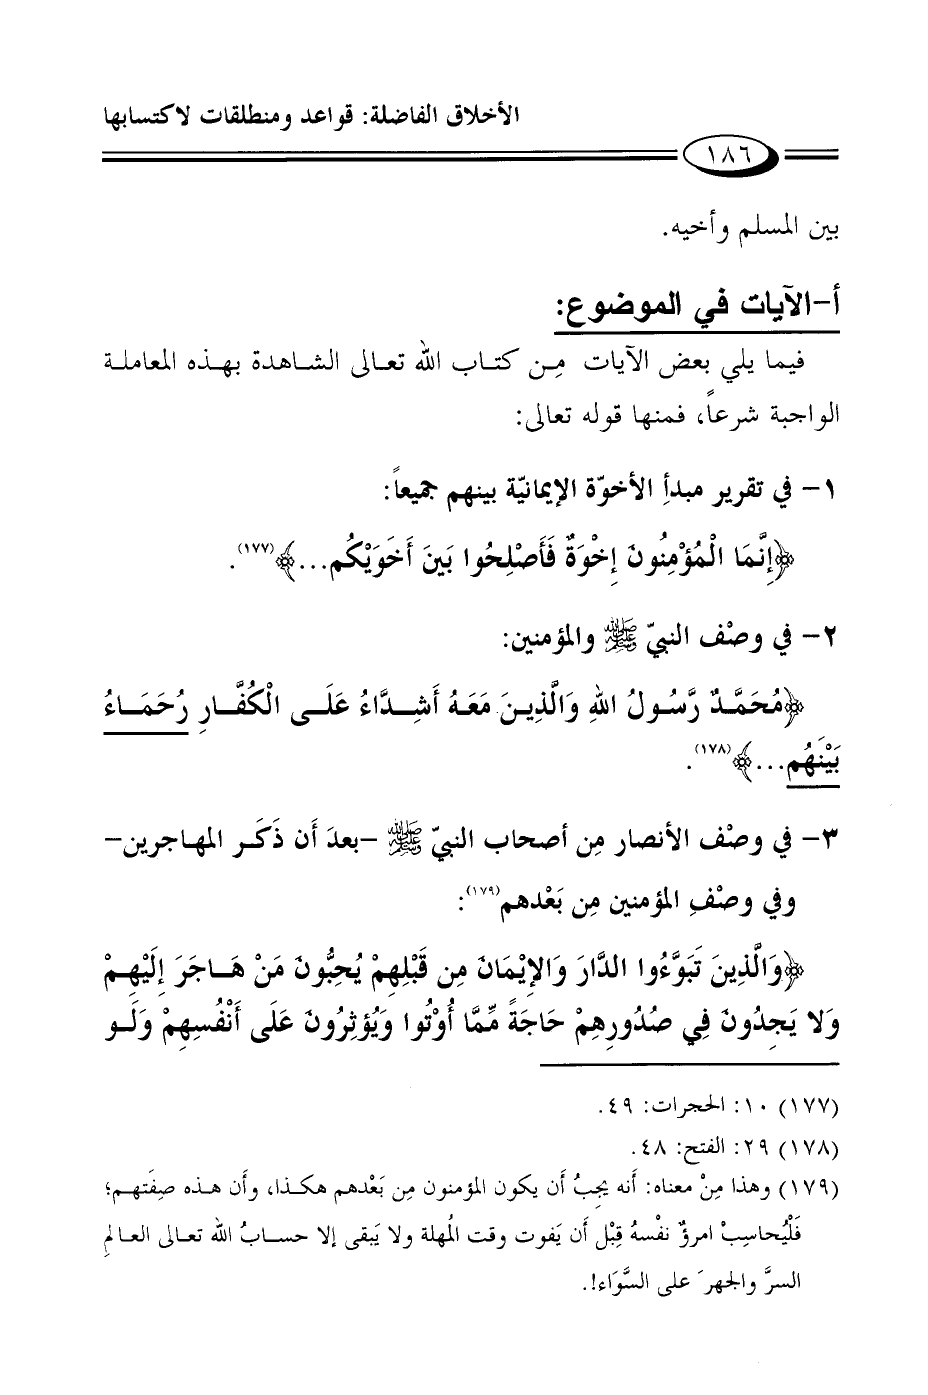 الأخلاق الفاضلة: قواعد ومنطلقات لاكتسابها
١٨٦
بين المسلم وأخيه.
أ-الآيات في الموضوع:
فيما يلي بعض الآيات مِن كتاب الله تعالى الشاهدة بهذه المعاملة
الواجبة شرعاً، فمنها قوله تعالى:
١- في تقرير مبدأِ الأخوّة الإيمانيّة بينهم جميعاً:
﴿إِنَّمَا الْمُؤْمِنُونَ إِخْوَةٌ فَأَصْلِحُوا بَيْنَ أَخَوَيْكُم...﴾(١٧٧).
٢- في وصْف النبيّ ﷺ والمؤمنين:
﴿مُحَمَّدٌ رَّسُولُ اللهِ وَالَّذِينَ مَعَهُ أَشِدَّاءُ عَلَى الْكُفَّارِ رُحَمَاءُ
بَيْنَهُم...﴾(١٧٨).
٣- في وصْف الأنصار مِن أصحاب النبيّ ﷺ -بعدَ أن ذَكَر المهاجرين-
وفي وصْفِ المؤمنين مِن بَعْدهم(١٧٩):
﴿وَالَّذِينَ تَبَوَّءُوا الدَّارَ وَالإِيْمَانَ مِن قَبْلِهِمْ يُحِبُّونَ مَنْ هَاجَرَ إِلَيْهِمْ
وَلا يَجِدُونَ فِي صُدُورِهِمْ حَاجَةً مِّمَّا أُوْتُوا وَيُؤْثِرُونَ عَلَى أَنْفُسِهِمْ وَلَو
(١٧٧) ١٠: الحجرات: ٤٩.
(١٧٨) ٢٩: الفتح: ٤٨.
(١٧٩) وهذا مِنْ معناه: أنه يجبُ أن يكون المؤمنون مِن بَعْدهم هكذا، وأن هذه صِفَتهم؛
فَلْيُحاسِبْ امرؤٌ نفْسهُ قبْل أن يَفوت وقت المُهلة ولا يَبقى إلا حسابُ الله تعالى العالمِ
السرَّ والجهرَ على السَّوَاء!.